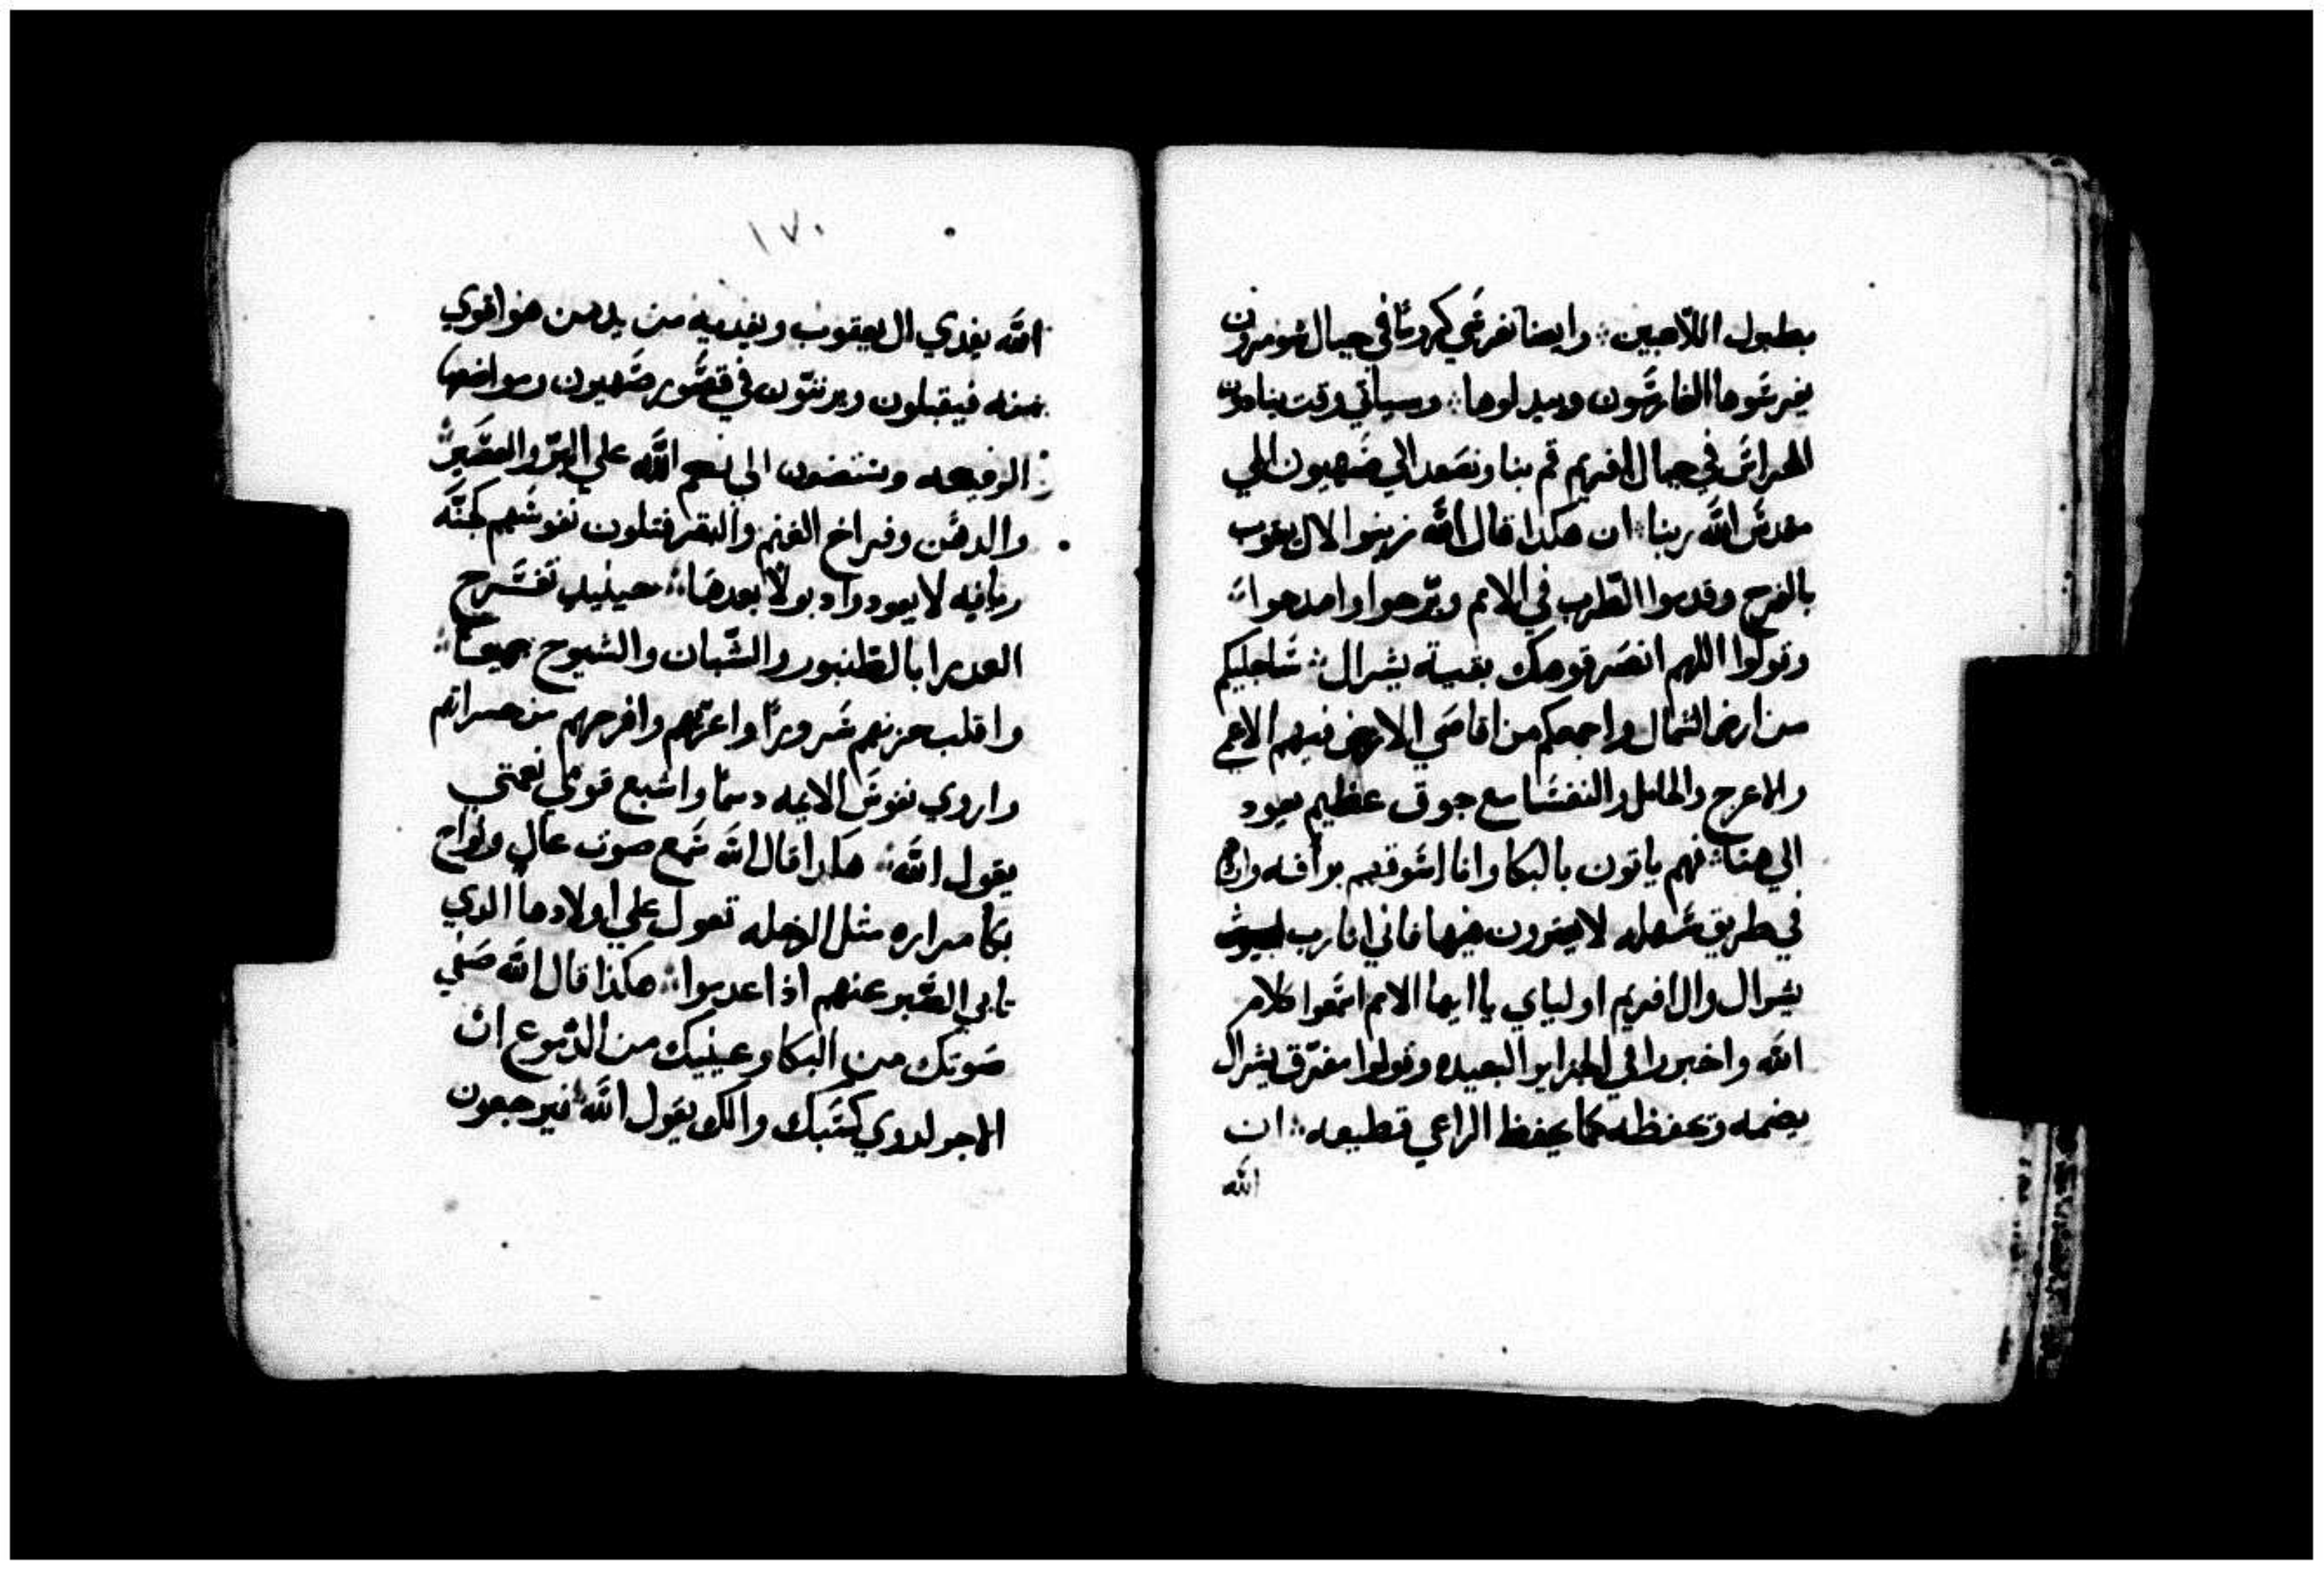 بطبول اللاعبين وايضا تغرشي كرومًا في جبال شومرون
يغرسوها الغارسون ويبدلوها وسياتي وقت ينادون
الحراس في جبال افريم قم بنا ونصعد الي صهيون الي
مقدس الله ربنا ان هكذا قال الله زينوا لال يعقوب
بالفرح وقدموا الطرب في الامم وبرحوا وامدحوا
وقولوا اللهم انصر قومك بقية يشرال ساجليكم
من ارض الشمال واجمعكم من اقاصي الارض فيهم الاعمي
والاعرج والحامل والنفسا مع جوق عظيم يعود
الي هنا فهم ياتون بالبكا وانا اسوقهم برافه
في طريق سهله لا يعثرون فيها فاني انا رب
يشرال وال افريم اولياي يا ايها الامم اسمعوا كلام
الله واخبروا في الجزاير البعيده وقولوا مفرّق يشرال
يضمه ويحفظه كما يحفظ الراعي قطيعه ان
الله
١٧٠
الله يفدي ال يعقوب ويفديه من يد من هو اقوي
منه فيقبلون ويرنّون في قصور صهيون ومواضعها
الرفيعه الي نعم الله علي البرّ والعصير
والدهن وفراخ الغنم والبقر نفوسهم كجنّه
ريانه لا يعودوا بعدها حينيد تفرح
العديرا بالطنبور والشبان والشيوخ جميعًا
واقلب حزنهم سرورًا واعزّهم وافرحهم من حسراتهم
واروي نفوس الايمه دسمًا واشبع قومي نعمتي
يقول الله هكدا قال الله سمع صوت عال ونواح
بكا مراره مثل تعول علي اولادها الدي
تابي الصبر عنهم اذا عدموا هكذا قال الله
صوتك من البكا وعينيك من الدموع ان
الاجر كسبك يقول الله فيرجعون